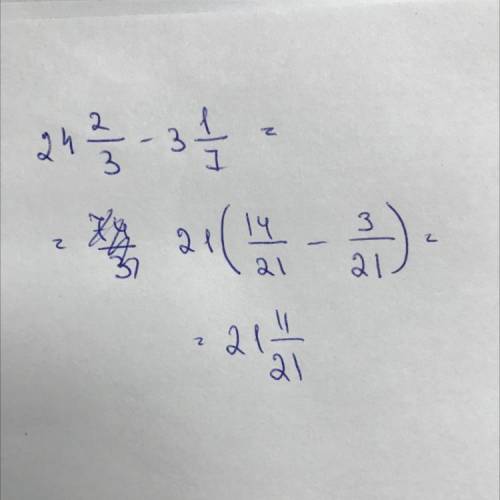 24 2/3 - 3 1/7 =
= 21 (14/21 - 3/21) =
= 21 11/21